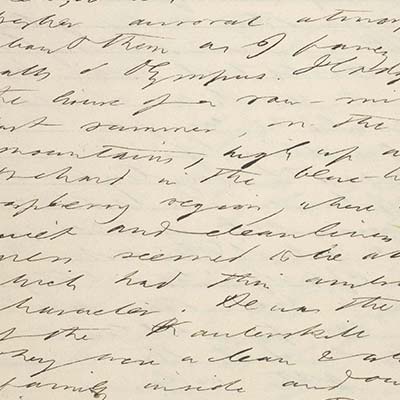 higher auroral atmosp
heard them as I fancy
halls of Olympus. I lodged
the house of a saw-mi
last summer, on the
mountains, high up a
Orchard in the blue-b
raspberry region where
quiet and cleanliness
men seemed to be al
which had this ambro
character. He was the
of the Kauterskill
They were a clean & wh
family inside and ou